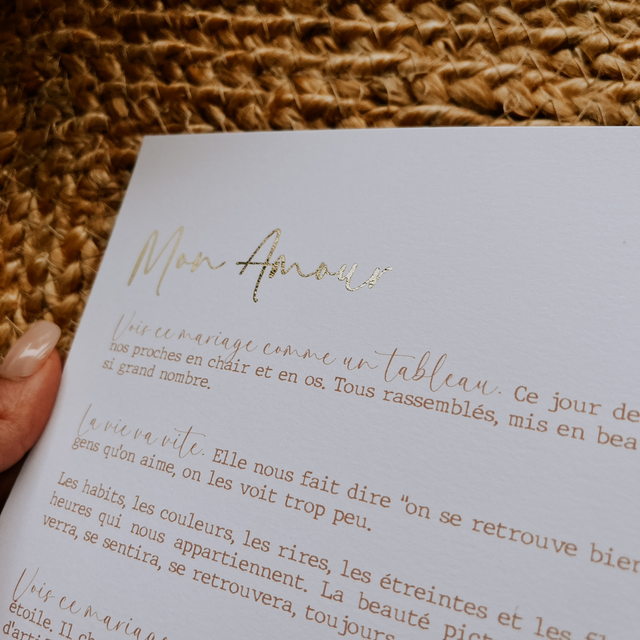 Mon Amour
Vois ce mariage comme un tableau. Ce jour de
nos proches en chair et en os. Tous rassemblés, mis en beau
si grand nombre.
La vie va vite. Elle nous fait dire "on se retrouve bien
gens qu'on aime, on les voit trop peu.
Les habits, les couleurs, les rires, les étreintes et les
heures qui nous appartiennent. La beauté
verra, se sentira, se retrouvera, toujours
Vois ce mariage
étoile. Il